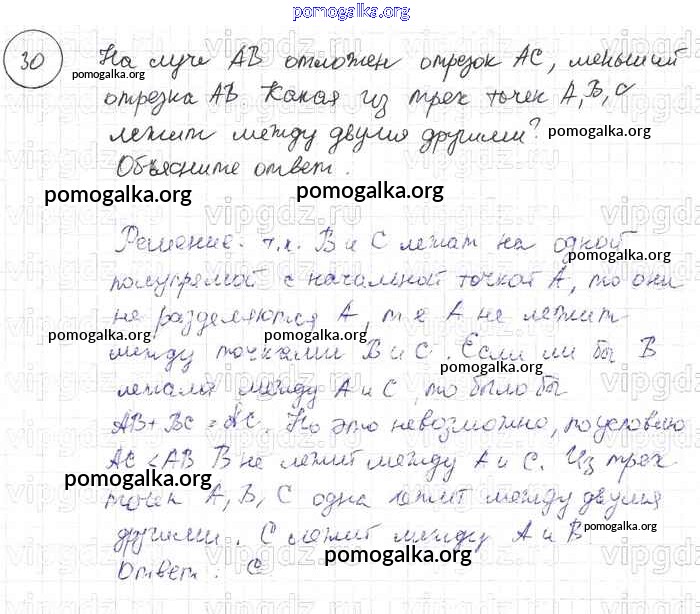 pomogalka.org
30 На луче AB отложен отрезок AC, меньший
pomogalka.org
отрезка AB. Какая из трех точек A, B, C
лежит между двумя другими? pomogalka.org
Объясните ответ.
pomogalka.org pomogalka.org
Решение. т.к. B и C лежат на одной
pomogalka.org
полупрямой с начальной точкой A, то они
не разделяются A, т.е A не лежит
pomogalka.org pomogalka.org pomogalka.org
между точками B и C. Если ли бы B
лежала между A и C, то было бы
AB + BC = AC. Но это невозможно, по условию
AC < AB B не лежит между A и C. Из трех
pomogalka.org
точек A, B, C одна лежит между двумя
другими. C лежит между A и B
pomogalka.org
pomogalka.org
Ответ: C
vipgdz.ru